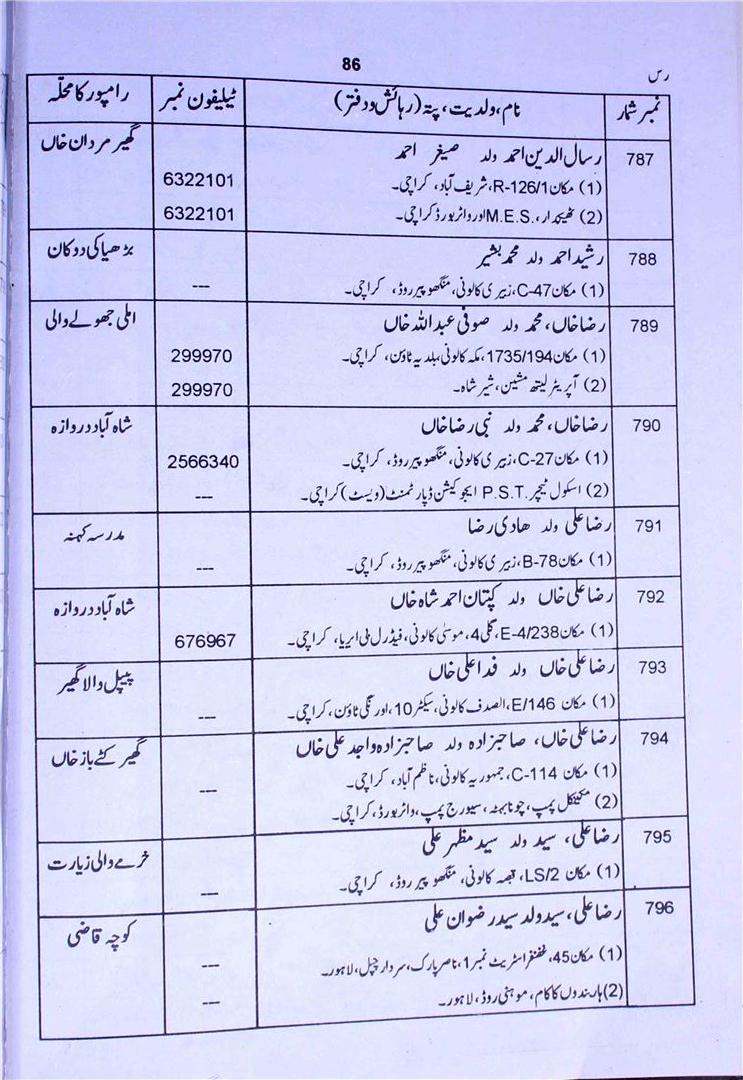 86
رس
نمبر شمار | نام، ولدیت، پتہ (رہائش و دفتر) | ٹیلیفون نمبر | رامپور کا محلّہ
787 | رسال الدین احمد ولد صیغر احمد | گھیر مردان خاں
(1) مکان R-126/1، شریف آباد، کراچی۔ | 6322101
(2) ٹھیکیدار، .M.E.S اور واٹر بورڈ کراچی۔ | 6322101
788 | رشید احمد ولد محمد بشیر | بڑھیا کی دوکان
(1) مکان C-47، زبیری کالونی، منگھو پیر روڈ، کراچی۔ | ---
789 | رضا خاں، محمد ولد صوفی عبداللہ خاں | املی جھولے والی
(1) مکان 1735/194، مکہ کالونی، بلدیہ ٹاؤن، کراچی۔ | 299970
(2) آپریٹر لیتھ مشین، شیر شاہ۔ | 299970
790 | رضا خاں، محمد ولد نبی رضا خاں | شاہ آباد دروازہ
(1) مکان C-27، زبیری کالونی، منگھو پیر روڈ، کراچی۔ | 2566340
(2) اسکول ٹیچر .P.S.T ایجوکیشن ڈپارٹمنٹ (ویسٹ) کراچی۔ | ---
791 | رضا علی ولد ھادی رضا | مدرسہ کہنہ
(1) مکان B-78، زبیری کالونی، منگھو پیر روڈ، کراچی۔ | ---
792 | رضا علی خاں ولد کپتان احمد شاہ خاں | شاہ آباد دروازہ
(1) مکان E-4/238، گلی 4، موسیٰ کالونی، فیڈرل بی ایریا، کراچی۔ | 676967
793 | رضا علی خاں ولد فدا علی خاں | پیپل والا گھیر
(1) مکان E/146، الصدف کالونی، سیکٹر 10، اورنگی ٹاؤن، کراچی۔ | ---
794 | رضا علی خاں، صاحبزادہ ولد صاحبزادہ واجد علی خاں | گھیر کٹے باز خاں
(1) مکان C-114، جمہوریہ کالونی، ناظم آباد، کراچی۔ | ---
(2) مکینکل پمپ، چونا بھٹہ، سیورج پمپ، واٹر بورڈ، کراچی۔
795 | رضا علی، سید ولد سید مظہر علی | خرمے والی زیارت
(1) مکان LS/2، قصبہ کالونی، منگھو پیر روڈ، کراچی۔ | ---
796 | رضا علی، سید ولد سید رضوان علی | کوچہ قاضی
(1) مکان 45، غضنفر اسٹریٹ نمبر 1، ناصر پارک، سردار چپل، لاہور۔ | ---
(2) ہار بندوں کا کام، موہنی روڈ، لاہور۔ | ---